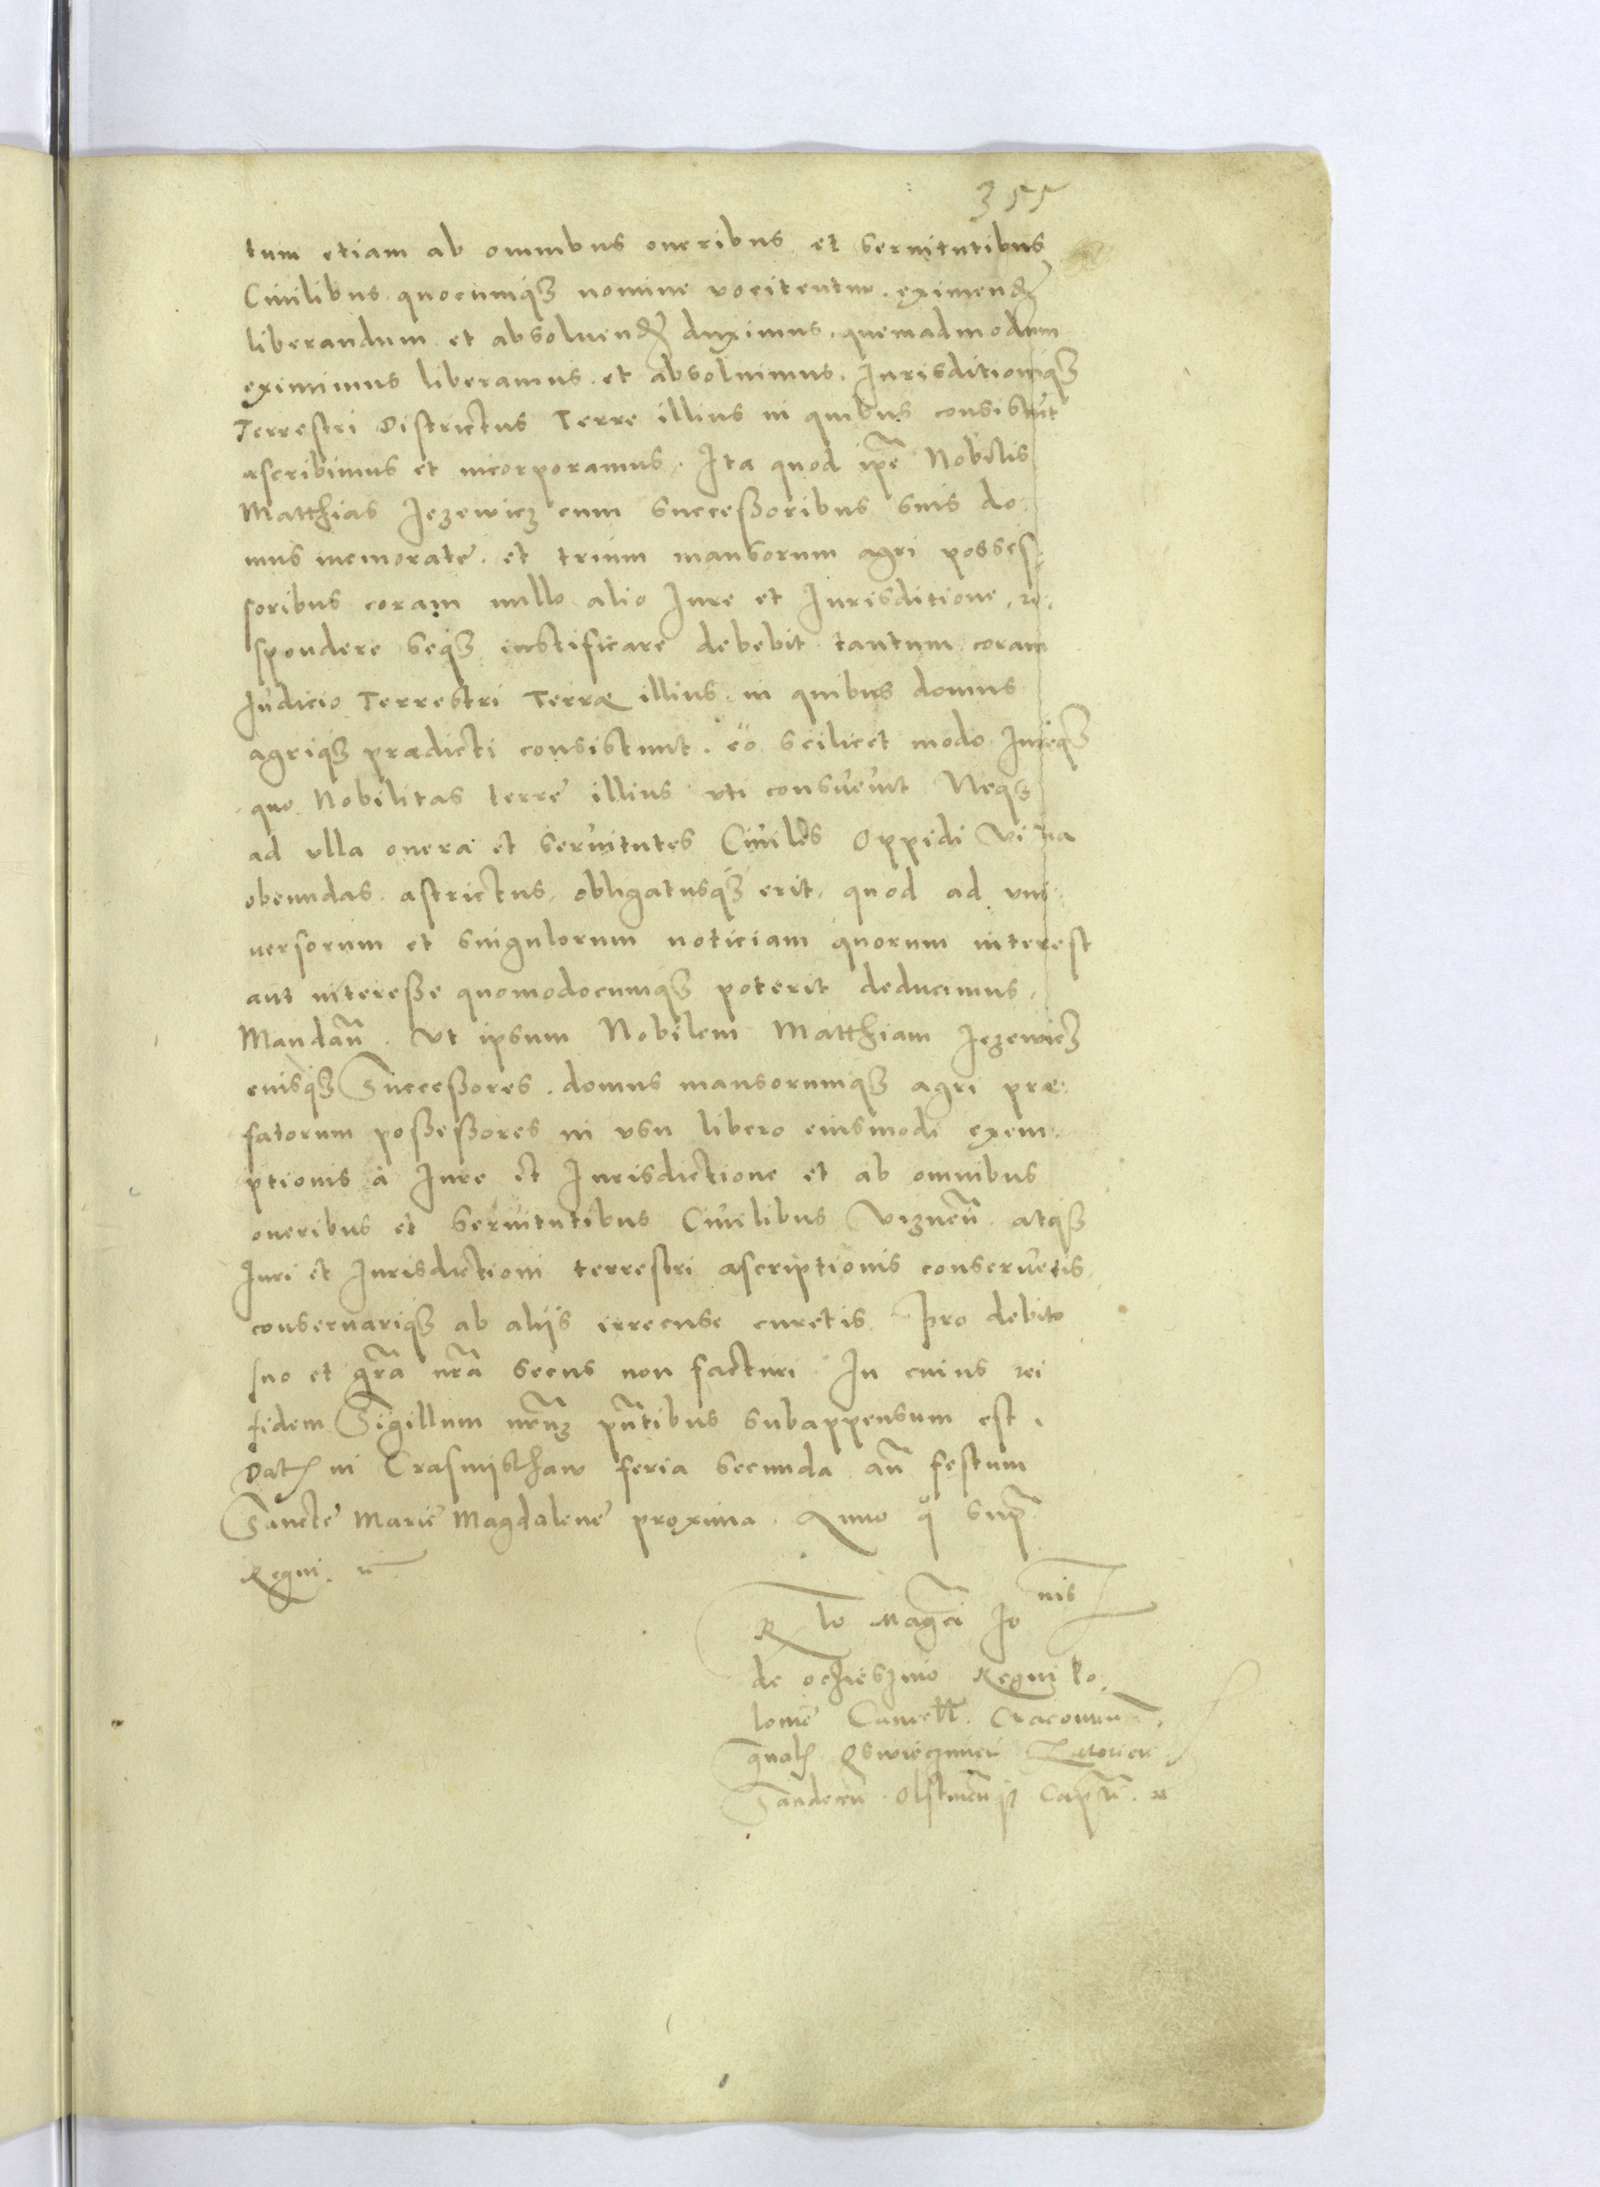 355
tum etiam ab omnibus oneribus et seruitutibus
Ciuilibus quocumq3 nomine vocitentur. eximend
liberandum et absoluend duximus. quemadmodum
eximimus liberamus. et absoluimus. Jurisditioniq3
Terrestri Districtus Terre illius in quibus consistut
ascribimus et incorporamus. Ita quod ip̃e Nobilis
Matthias Jezewicz cum successoribus suis do
mus memorate. et trium mansorum agri posses
soribus coram nullo alio Jure et Jurisditione, re
spondere seq3 iustificare debebit tantum coram
Judicio Terrestri Terræ illius. in quibus domus
agriq3 prædicti consistunt. eo scilicet modo Jureq3
quo Nobilitas terre illius vti consueuit Neq3
ad vlla onera et seruitutes Ciuiles Oppidi Visna
obeundas. astrictus, obligatusq3 erit. quod ad vni
uersorum et singulorum noticiam quorum interest
aut interesse quomodocumq3 poterit deducimus.
Mandan̄. Vt ipsum Nobilem Matthiam Jezewicz
eiusq3 Successores. domus mansorumq3 agri præ
fatorum possessores in vsu libero eiusmodi exem
ptionis à Jure et Jurisdictione et ab omnibus
oneribus et seruitutibus Ciuilibus Viznen̄. atq3
Juri et Jurisdictioni terrestri ascriptionis conseruetis
conseruariq3 ab aliis irrecuse curetis. Pro debito
suo et gr̃a nr̃a secus non facturi In cuius rei
fidem Sigillum nr̃m pn̄tibus subappensum est.
Dat in Crasmisthaw feria secunda an̄ festum
Sancte Marie Magdalene proxima. Anno q̃ sup̃
Regni.
R lo Mag̃ci Jo nis
de ochieszino Regni Po
lonie Cancell. Cracouien̄.
gnal Oswieczimen Zatorien
Sandecen̄. Olstinen̄ q3 Capt̄.